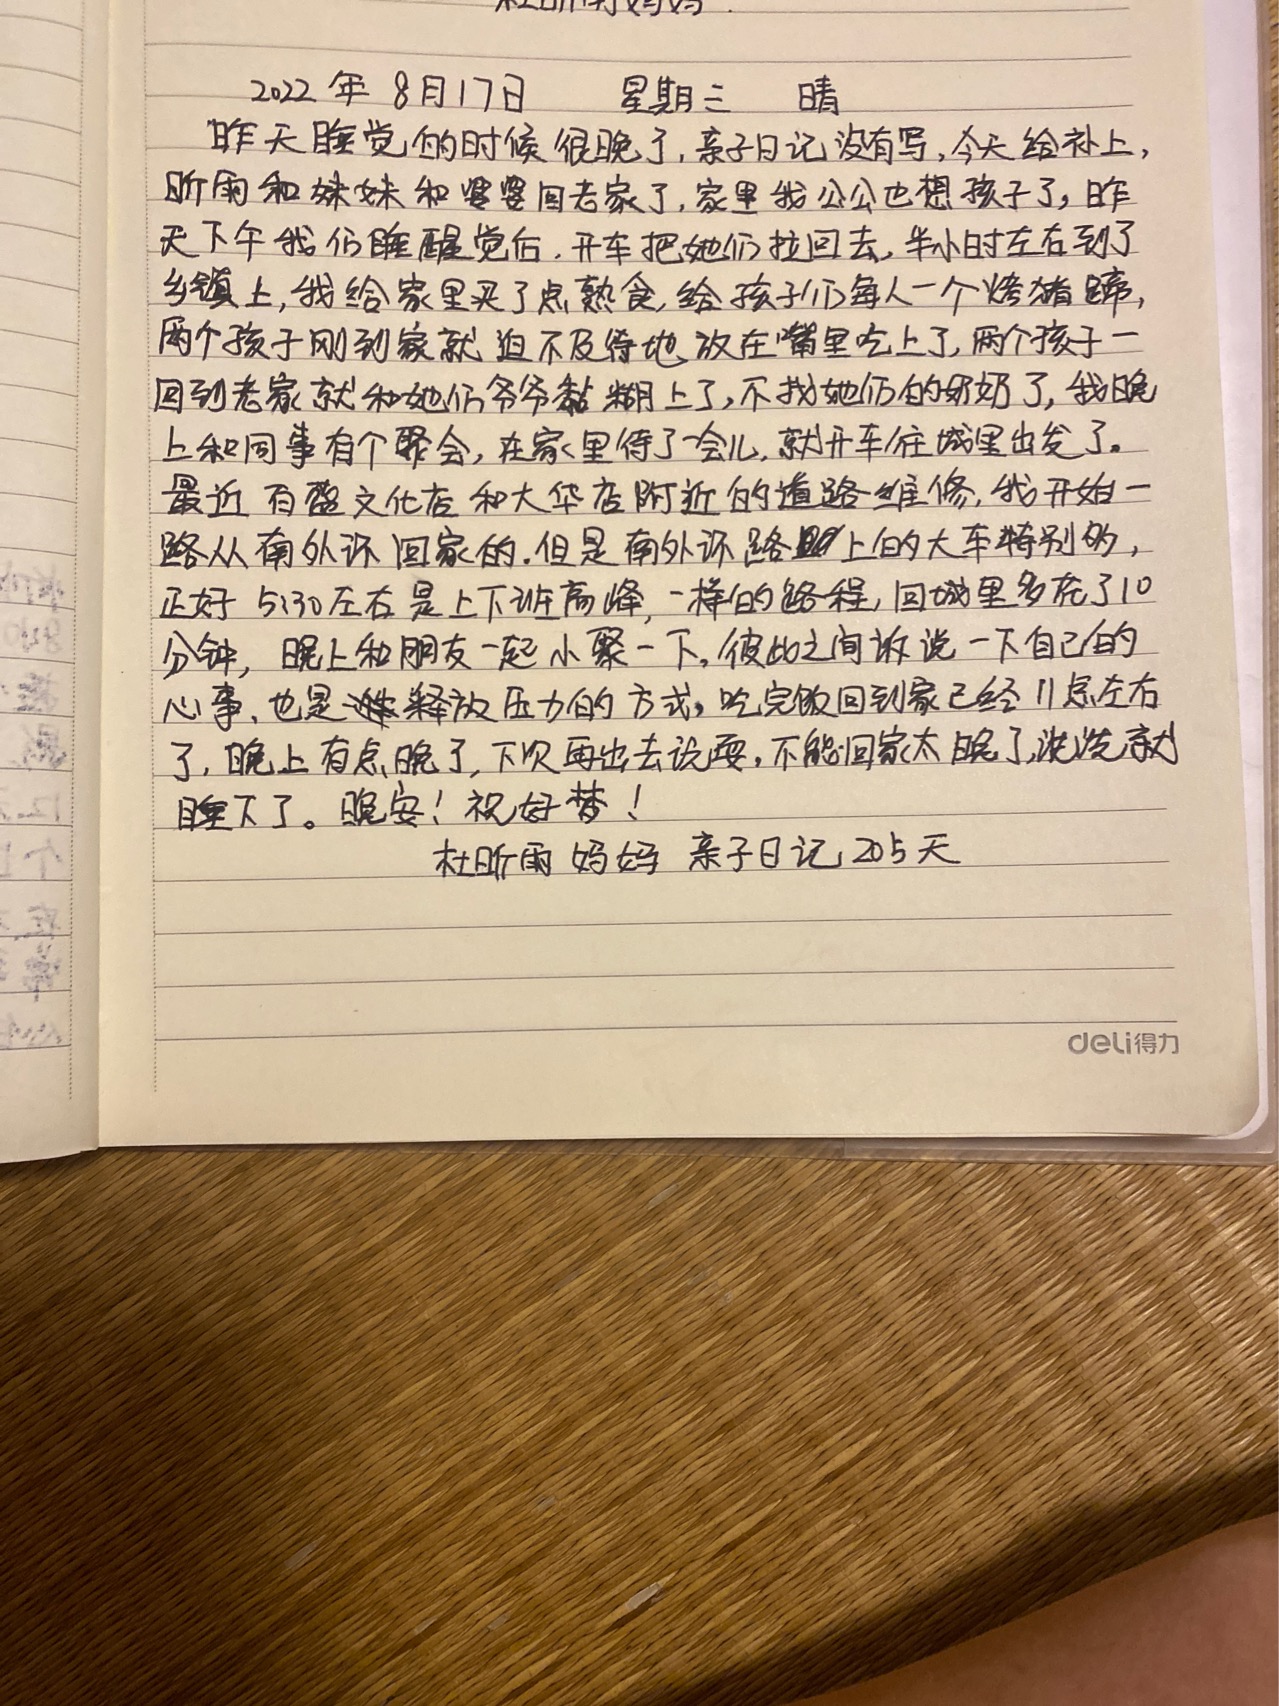 杜昕雨妈妈.
2022年8月17日 星期三 晴
昨天睡觉的时候很晚了,亲子日记没有写,今天给补上,
昕雨和妹妹和婆婆回老家了,家里我公公也想孩子了,昨
天下午我们睡醒觉后,开车把她们拉回去,半小时左右到了
乡镇上,我给家里买了点熟食,给孩子们每人一个烤猪蹄,
两个孩子刚到家就迫不及待地放在嘴里吃上了,两个孩子一
回到老家就和她们爷爷黏糊上了,不找她们的奶奶了,我晚
上和同事有个聚会,在家里待了一会儿,就开车往城里出发了。
最近 文化店和大华店附近的道路维修,我开始一
路从南外环回家的.但是南外环路上的大车特别多,
正好5:30左右是上下班高峰,一样的路程,回城里多花了10
分钟,晚上和朋友一起小聚一下,彼此之间诉说一下自己的
心事,也是释放压力的方式,吃完饭回到家已经11点左右
了,晚上有点晚了,下次再出去玩耍,不能回家太晚了,洗洗就
睡下了。晚安!祝好梦!
杜昕雨妈妈 亲子日记205天
deli得力